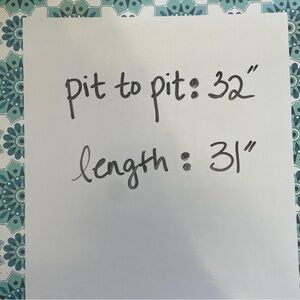 pit to pit: 32"
length: 31"